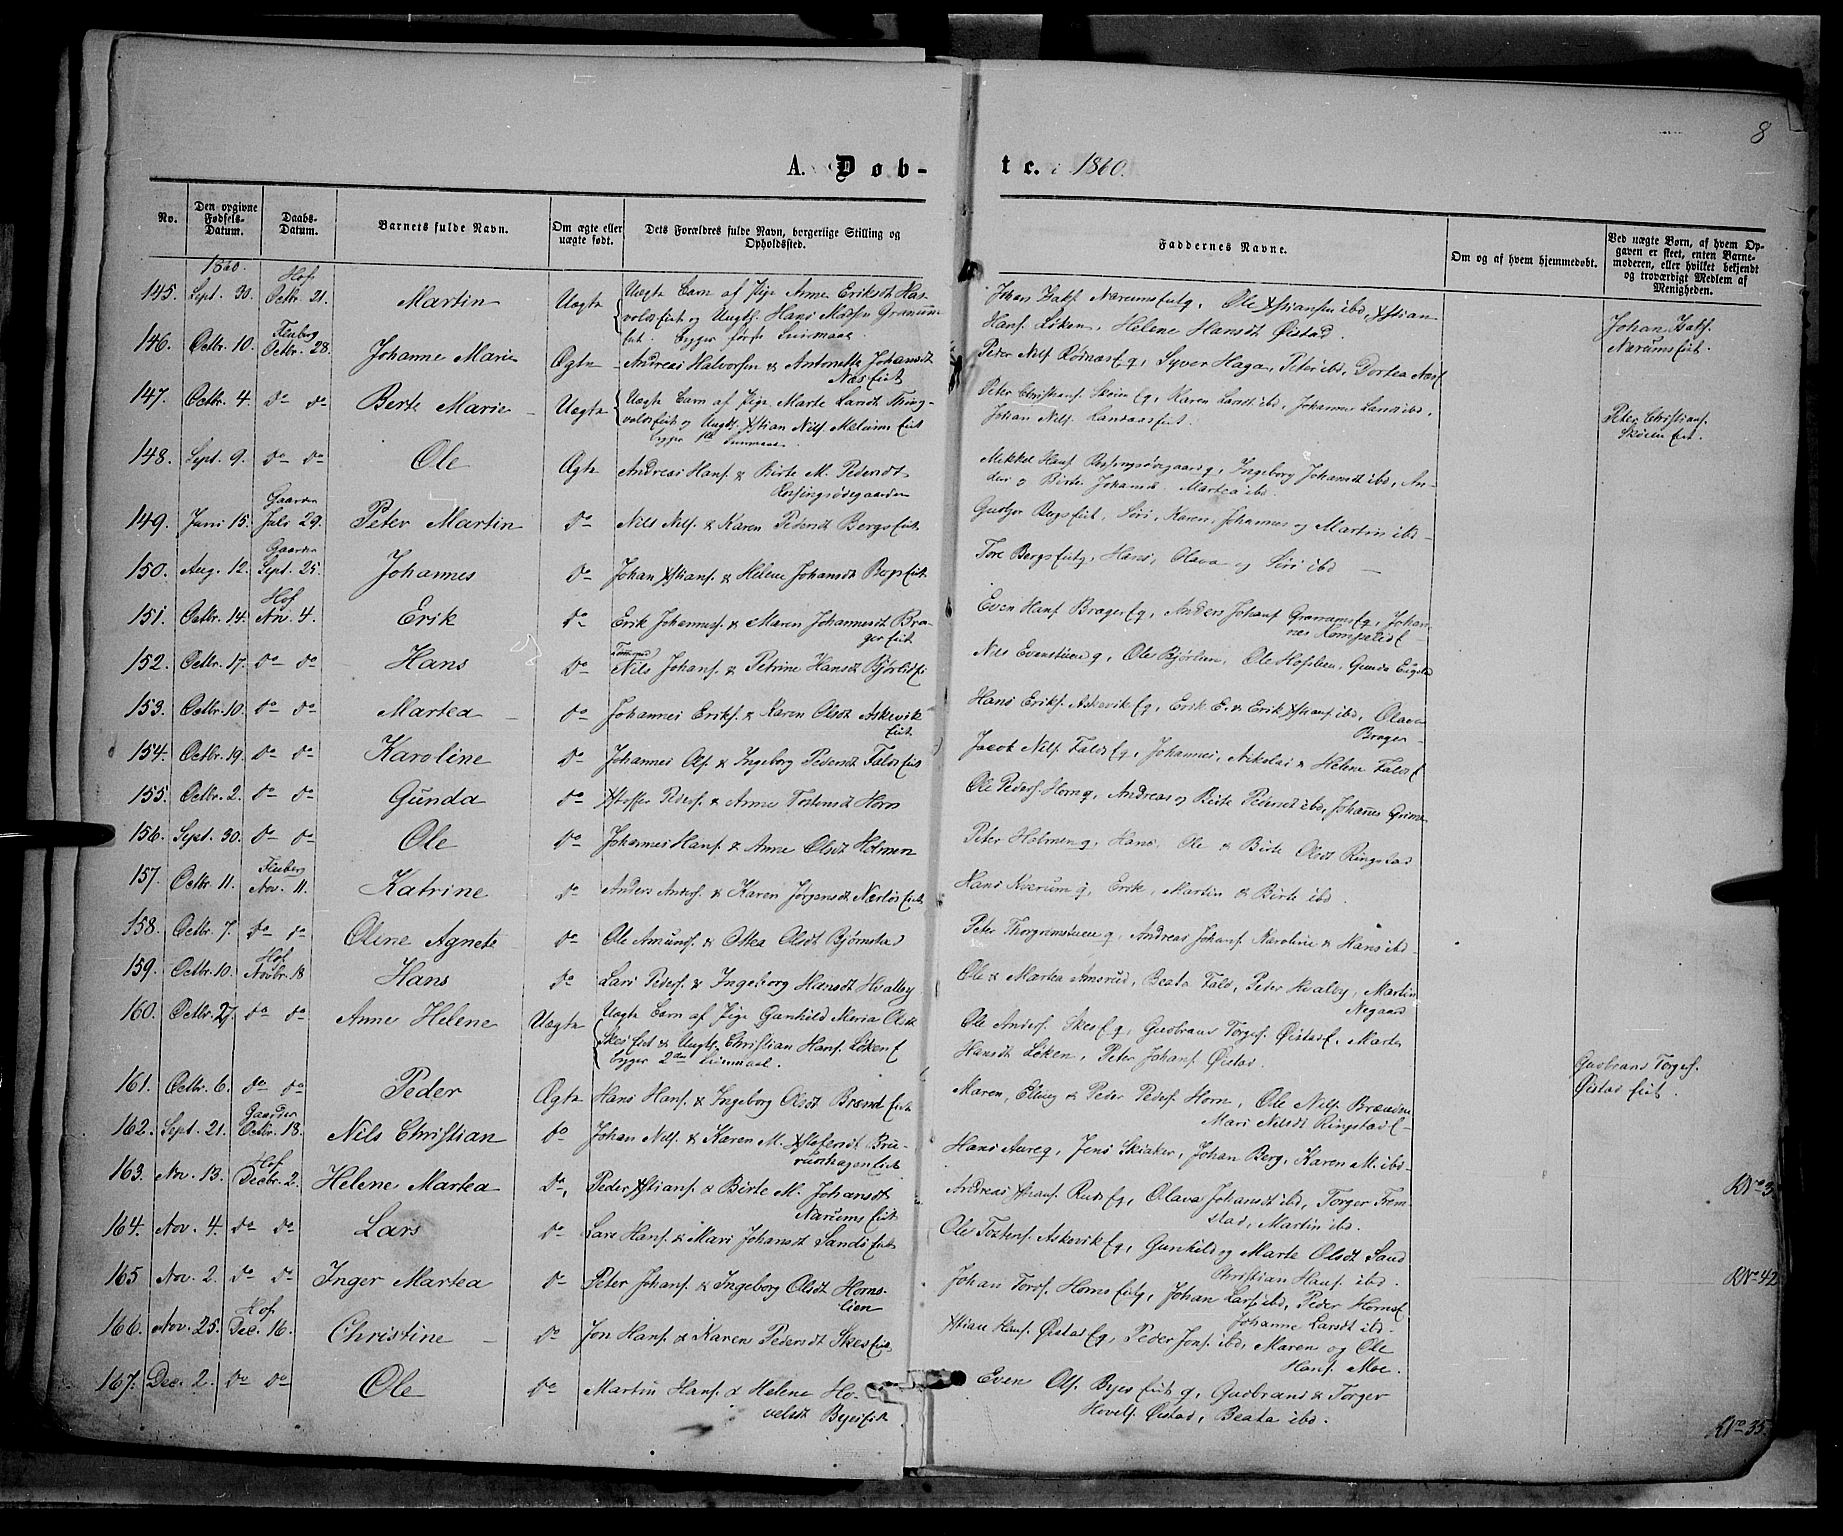 8
A. Døb-
te. i 1860.
No.
Den opgivne Fødsels-Datum.
Daabs-Datum.
Barnets fulde Navn.
Om ægte eller uægte født.
Dets Forældres fulde Navn, borgerlige Stilling og Opholdssted.
Faddernes Navne.
Om og af hvem hjemmedøbt.
Ved uægte Børn, af hvem Opgaven er skeet, enten Barnemoderen, eller hvilket bekjendt og troværdigt Medlem af Menigheden.
1860. Hof
145. Sept. 30. Octbr. 21. Martin Uegte Uegte Barn af Pige Anne Eriksdt Has-
voldseiet og Ungk. Hans Madsen Granum
eiet. begges første Leiermaal
Johan Isaks. Narumseietq, Ole Xstiansen ibd, Xstian
Hans. Løken, Helene Hansdt Øistad.
Johan Isaks. Narumseiet.
Fluberg
146. Octbr. 10. Octbr. 28. Johanne Marie Ægte Andreas Halvorsen & Antonette Johansdt
Næseiet
Peter Nils. q, Syver Haga, Peter ibd, Dortea
147. Octbr. 4. do do Berte Marie Uegte Uegte Barn af Pige Marte Larsdt
voldseiet og Ungk. Xstian Nils. Melums eiet
begges 1ste Leiermaal
Peter Christians. Skøien q, Karen Larsdt ibd, Johannes Lands ibd,
Johan Nils. Landaaseiet.
Peter Christians.
Skøien eiet.
148. Sept. 9. do do Ole Ægte Andreas Hans. & Birte M. Pedersdt
Rossingsødegaarden
Mikkel Hans. Rossingsødegaardq, Ingeborg Johansdt ibd, An-
ders og Birte Johans. Martea ibd.
Gaarden
149. Juni 15. Juli 29. Peter Martin do Nils Nils. & Karen Pedersdt Bergseiet.
Siri, Karen, Johannes og Martin ibd
Gaarden
150. Aug. 12. Sept. 25. Johannes do Johan Xstians. & Helene Johansdt Bergseiet
Tore Bergseietq, Hans, Olava og Siri ibd
Hof
151. Octbr. 14. Nov. 4. Erik do Erik Johanness. & Maren Johannesdt Bra-
gereiet
Even Hans. Bragerq, Anders Johans. Granumsq, Johan-
nes
152. Octbr. 17. do do Hans do Nils Johans. & Petrine Hansdt
Nils Evenstuen q, Ole Bjørlien, Ole Hofslien, Gunda
153. Octbr. 10. do do Martea do Johannes Eriks. & Karen Olsdt Askevik-
eiet
Hans Eriks. Askevik q, Erik E. & Erik Xstians. ibd, Olava
Brager
154. Octbr. 19. do do Karoline do Johannes Ols. & Ingeborg Pedersdt Faldseiet
Jacob Nils. Falds q, Johannes, Nikolai & Helene Falds
155. Octbr. 2. do do Gunda do Xstoffer Peders. & Anne Tostensdt Horn
Ole Peders. Hornq, Andreas og Birte ibd, Johannes
156. Sept. 30. do do Ole do Johannes Hans. & Anne Olsdt Holmen
Peter Holmenq, Hans, Ole & Birte Olsdt Ringstad
Fluberg
157. Octbr. 11. Nov. 11. Katrine do Anders Anders. & Karen Jørgensdt
Hans q, Erik, Martin & Birte ibd.
158. Octbr. 7. do do Oline Agnete do Ole Amunds. & Ottea Olsdt Bjørnstad
Peter Thorgrimstuen q, Andreas Johans. Karoline & Hans ibd
Hof
159. Octbr. 10. Novbr. 18 Hans do Lars Peders. & Ingeborg Hansdt Hvalby
Ole & Martea Amsrud, Beata Fald, Peter Hvalby, Martin
Negaar
160. Octbr. 27. do do Anne Helene Uegte Uegte Barn af Pige Gunhild Maria Olsdt
Skeseiet & Ungk. Christian Hans. Løken
begges 2den Leiermaal.
Ole Anders. Skes q, Gudbrand Torges. Øistads, Marte
Hansdt Løken, Peter Johans. Øistad.
Gudbrand Torges.
Øistad eiet.
161. Octbr. 6. do do Peder Ægte Hans Hans. & Ingeborg Olsdt Brandeiet
Maren, Elling & Peder Peders. Horn, Ole Nils. Branden
Mari Nilsdt Ringstad
Gaarden
162. Sept. 21. Octbr. 18. Nils Christian do Johan Nils. & Karen M. Xstofersdt Bru-
Hans Aureq, Jens Skiaker, Johan Berg, Karen M. ibd
Hof
163. Nov. 13. Decbr. 2. Helene Martea do, Peder Xstians. & Birte M. Johansdt
Narumseiet
Andreas Xstians. Ruds q, Olava Johansdt ibd, Torger Frem-
stad, Martin ibd.
KNo 3
164. Nov. 4. do do Lars do Lars Hans. & Mari Johansdt Sandseiet
Ole Tostens. Askevik q, Gunhild og Marte Olsdt Sand
Christian Hans. ibd.
165 Nov. 2. do do Inger Martea do Peter Johans. & Ingeborg Olsdt Horns-
lien
Johan Tors. Hornseietq, Johan Lars. ibd, Peder Horns
Johanne Larsdt ibd
KNo 42
Hof
166. Nov. 25. Dec. 16. Christine do Jon Hans. & Karen Pedersdt Skeseiet
Xstian Hans. Øistad q, Peder Jons. ibd, Maren og Ole
Hans. Moe.
167. Dec. 2. do do Ole do Martin Hans. & Helene Ho-
velsdt Byeseiet
Even Ols. Byes eiet q, Gudbrand & Torger
Hovels. Øistad, Beata ibd.
KNo 35